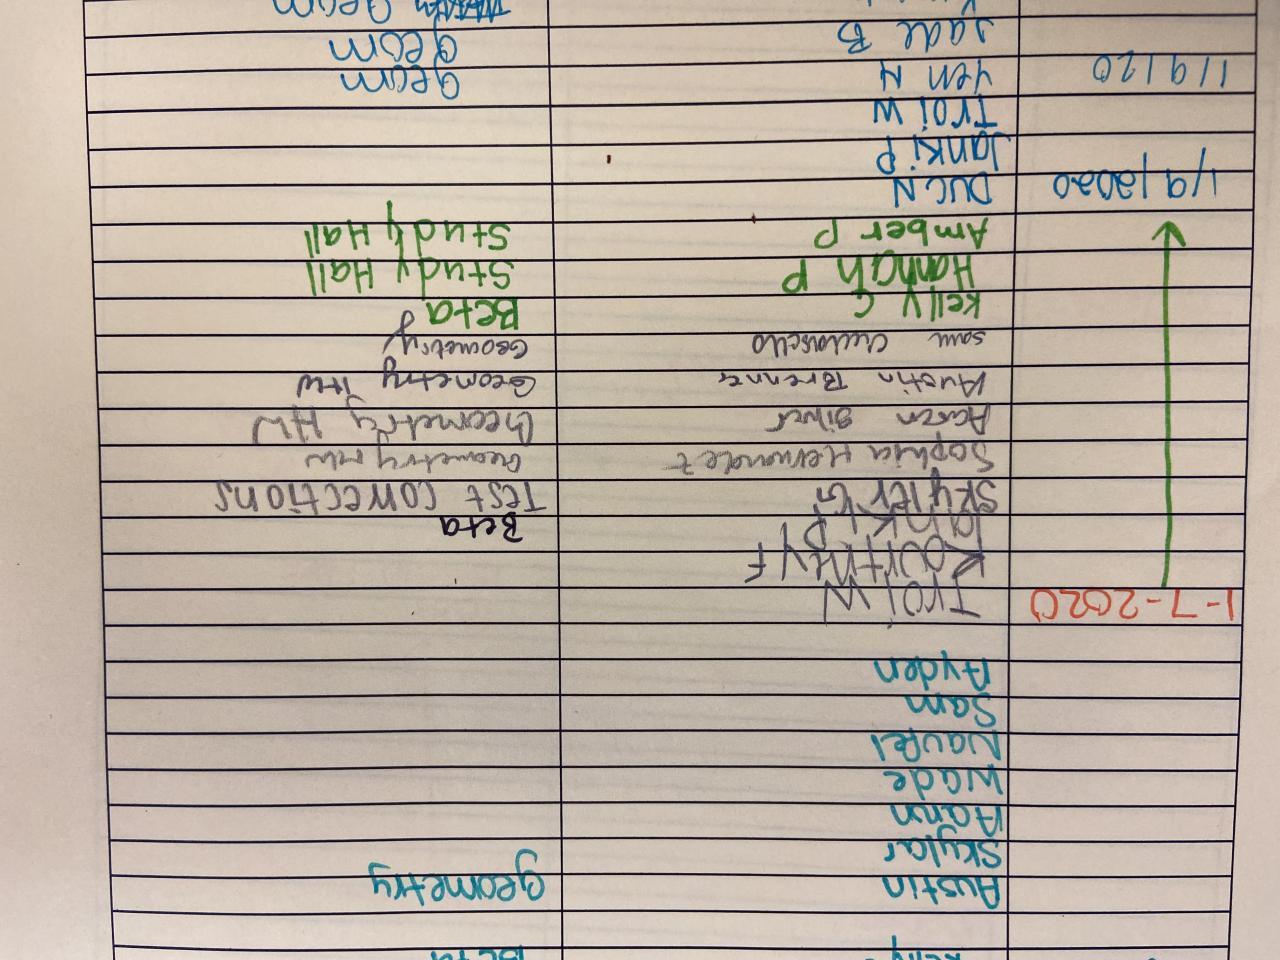 Kelly Beta
Austin Geometry
Skylar
Aarin
Wade
Naufel
Sam
Ayden
1-7-2020 Troi W
Kourtney F
Janki P Beta
Skyler G Test Corrections
Sophia Hernandez Geometry HW
Aaron Silver Geometry HW
Austin Brenner Geometry HW
Sam Geometry
Kelly C Beta
Hannah P Study Hall
Amber P Study Hall
1/9/2020 Duc N
Janki P
Troi W
1/9/20 Yen N Geom
Jade B Geom
Geom